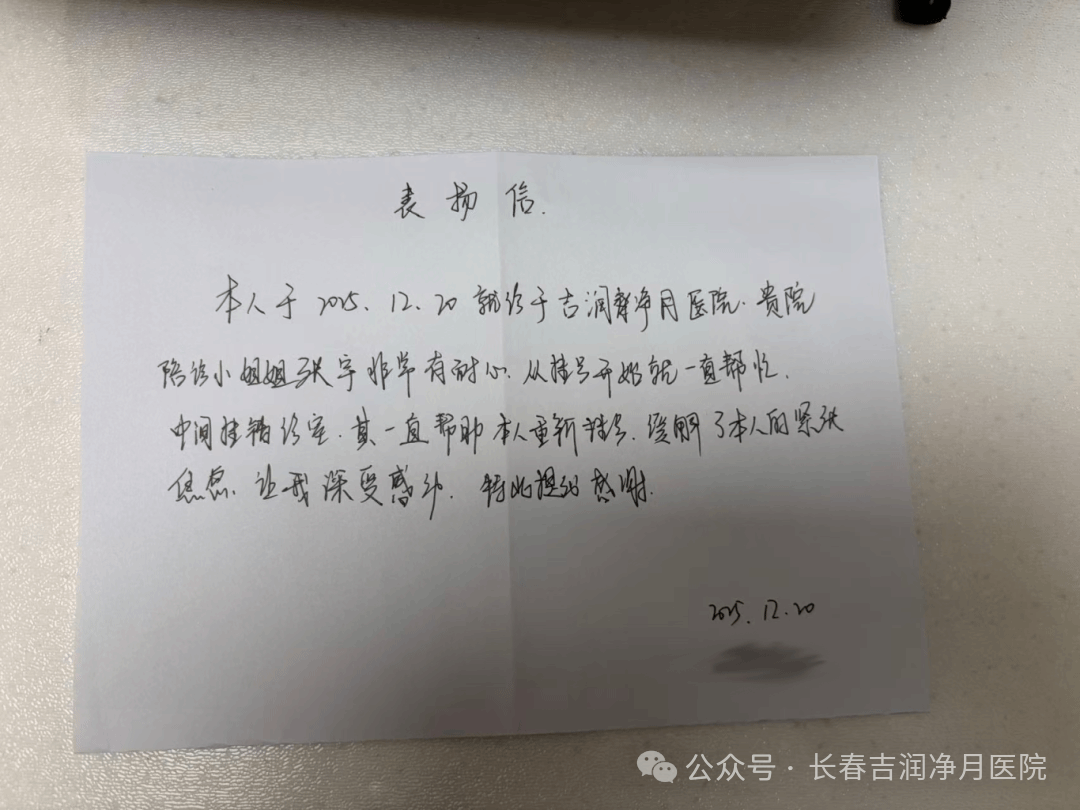 表扬信.
本人于2025.12.20就诊于吉润净月医院.贵院
陪诊小姐姐张宇非常有耐心.从挂号开始就一直帮忙.
中间挂错诊室.其一直帮助本人重新挂号.缓解了本人的紧张
焦虑.让我深受感动.特此提出感谢.
2025.12.20
公众号·长春吉润净月医院